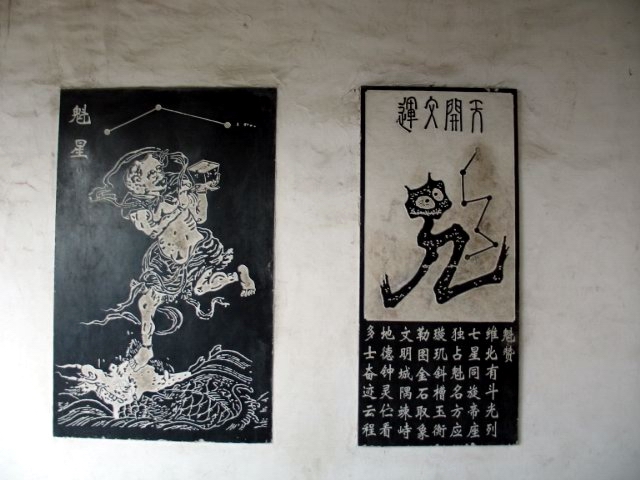 魁星
天開文運
魁赞
维北有斗光列
七星同旋帝座
独占魁名方应
璇玑斜玉衡
勒图金石取象
文明城隅竦峙
地德钟灵伫看
多士奋迹云程